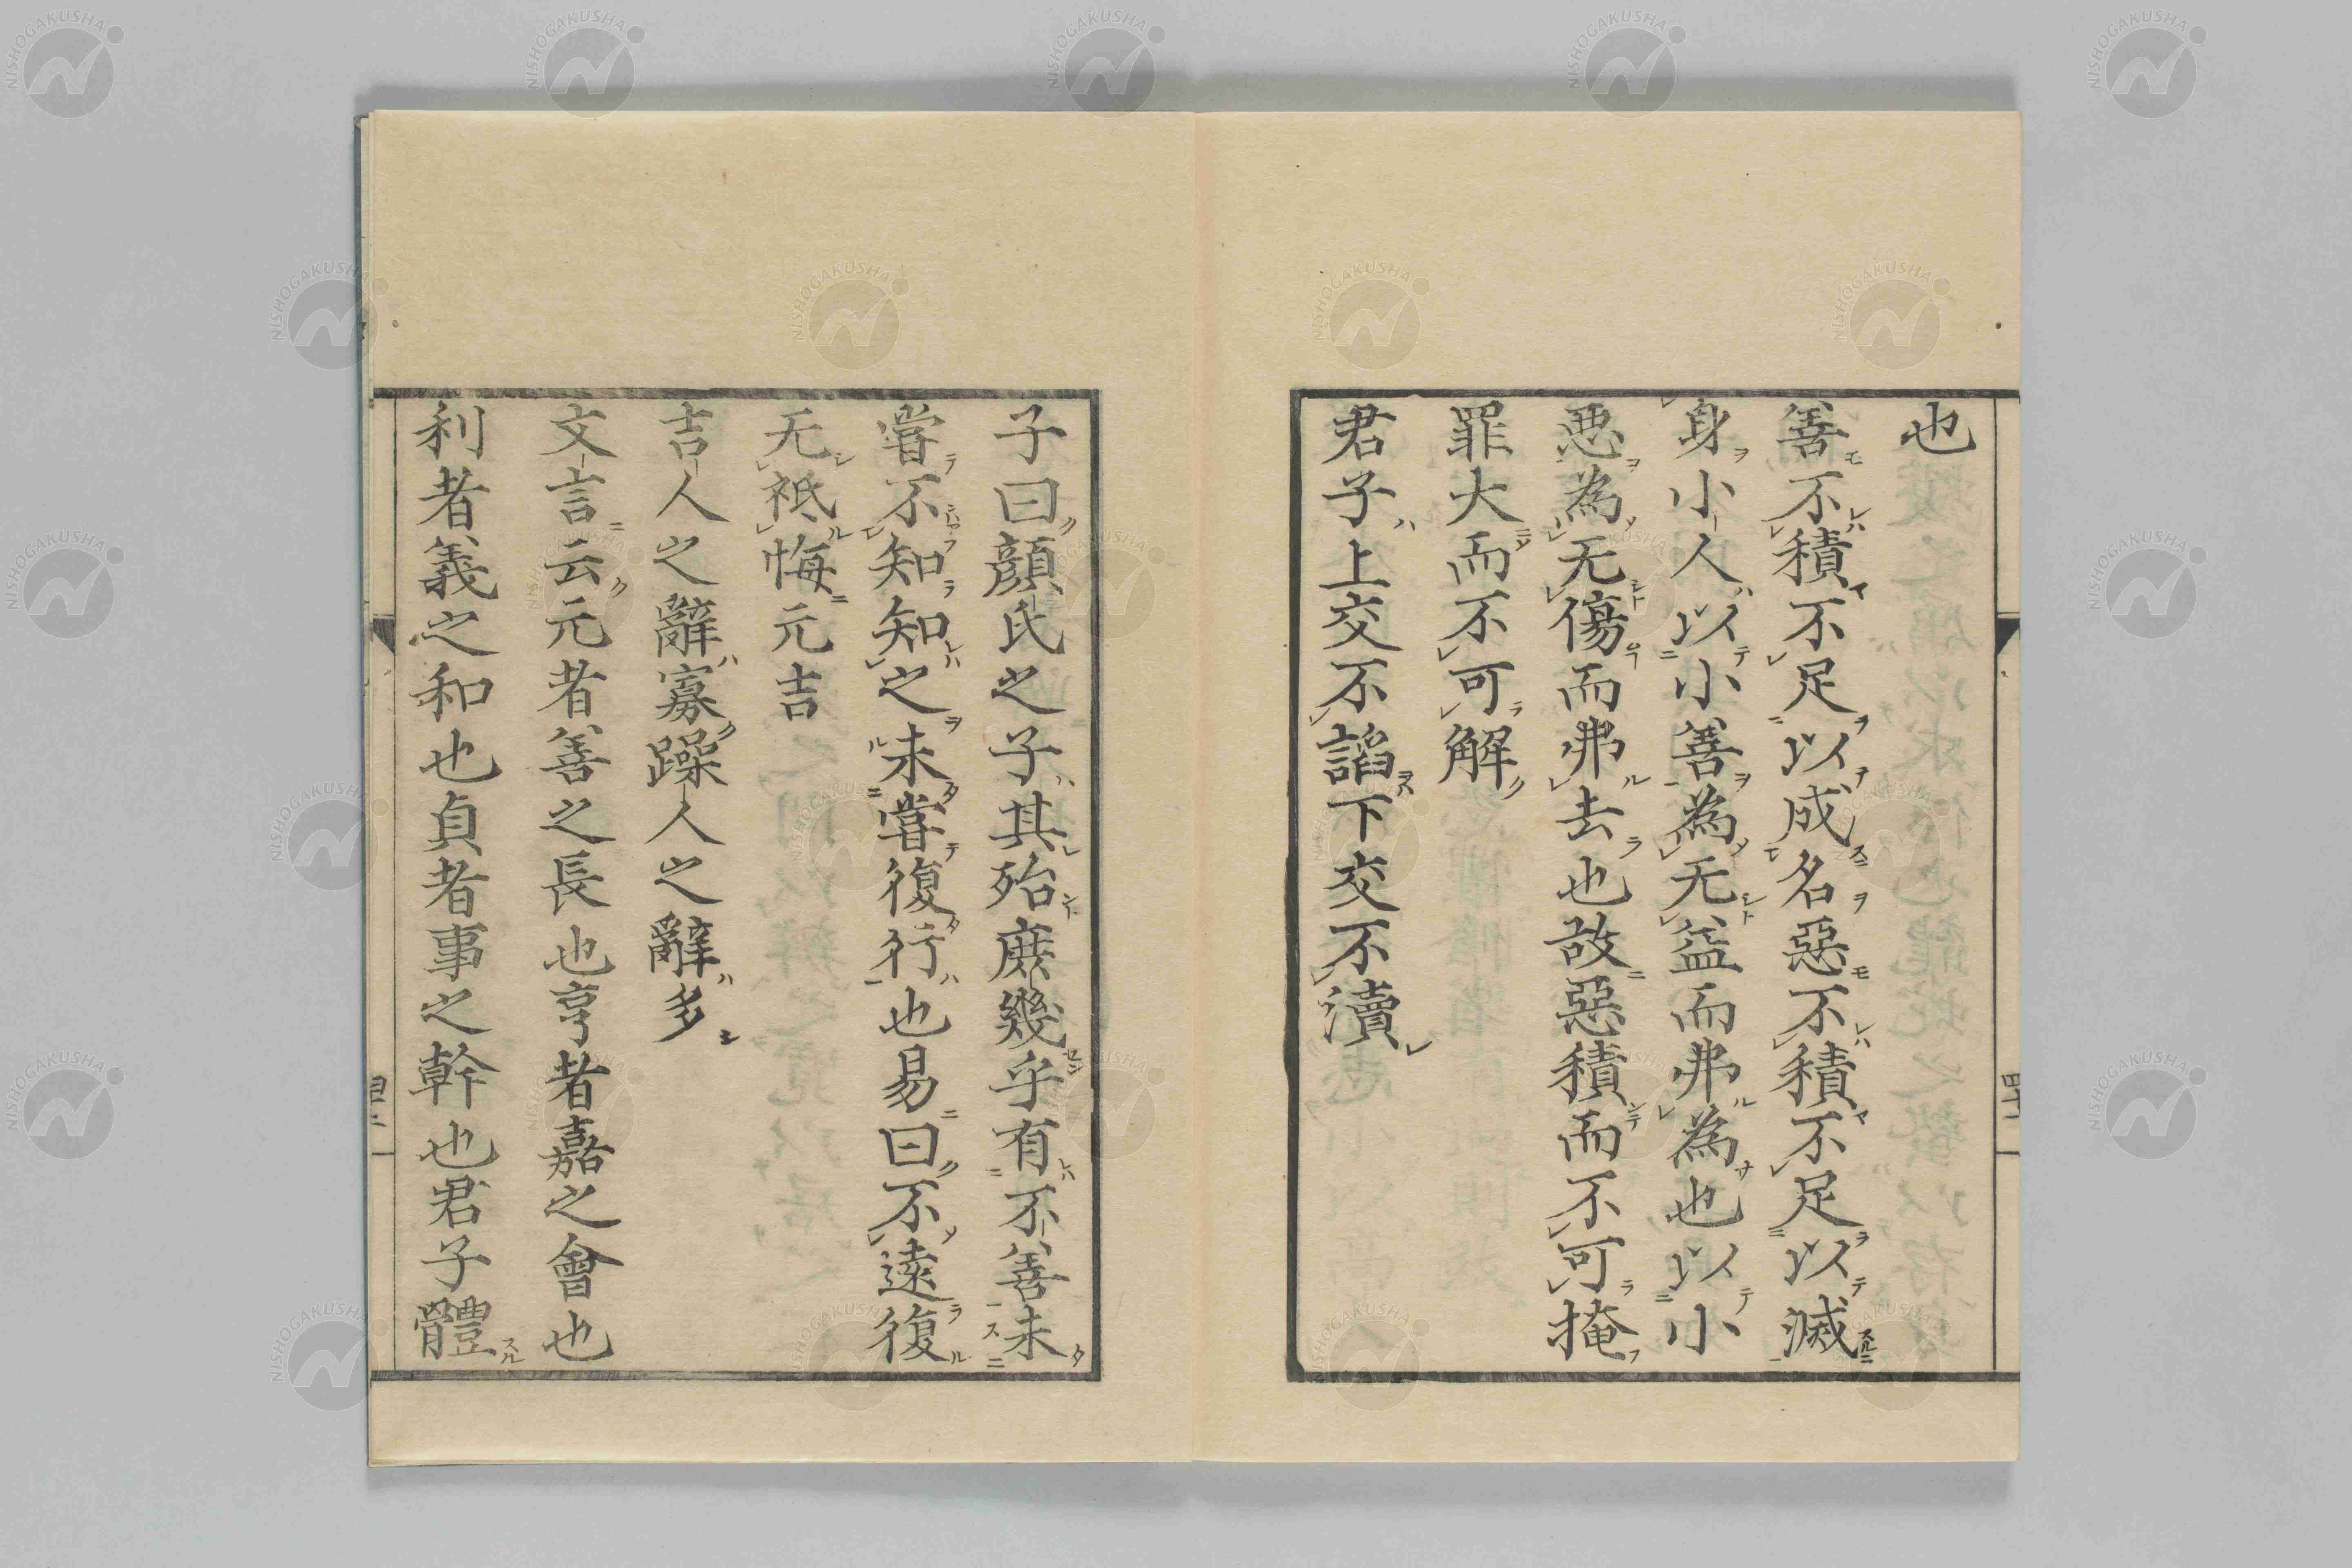 也
善不積不足以成名惡不積不足以滅
身小人以小善為无益而弗為也以小
悪為无傷而弗去也故惡積而不可掩
罪大而不可解
君子上交不諂下交不瀆
子曰顔氏之子其殆庶幾乎有不善未
嘗不知知之未嘗復行也易曰不遠復
无祗悔元吉
吉人之辭寡躁人之辭多
文言云元者善之長也亨者嘉之會也
利者義之和也貞者事之幹也君子體
NISHOGAKUSHA